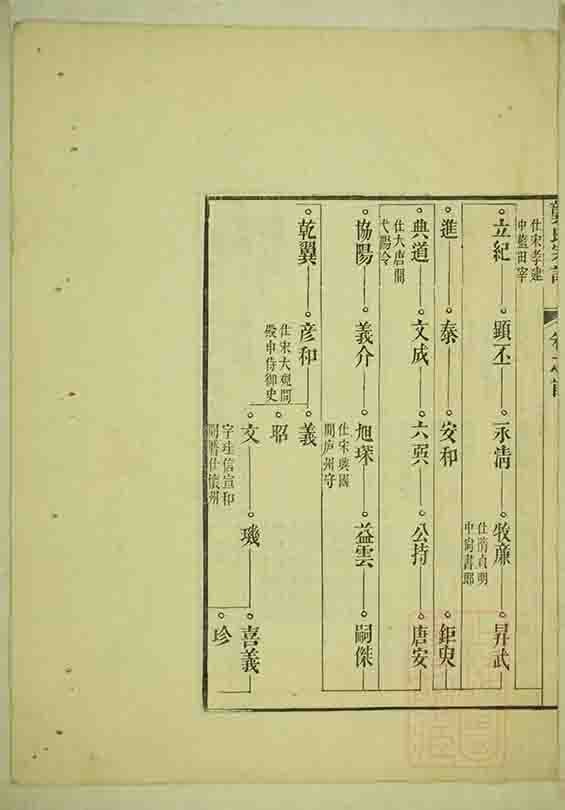 仕宋孝建
中藍田宰
立紀 顕丕 永清 牧廉 昇武
仕蕭貞明
中尚書郎
進 泰 安和 鉅
典道 文成 六 公持 唐安
仕大唐間
弋陽令
協陽 義介 旭琛 益雲 嗣傑
仕宋興國
間庐州守
乾翼 彦和 義
仕宋大观間
殿中侍御史
昭
文 璣 喜義
字珪信宣和
間晋仕懷州
珍